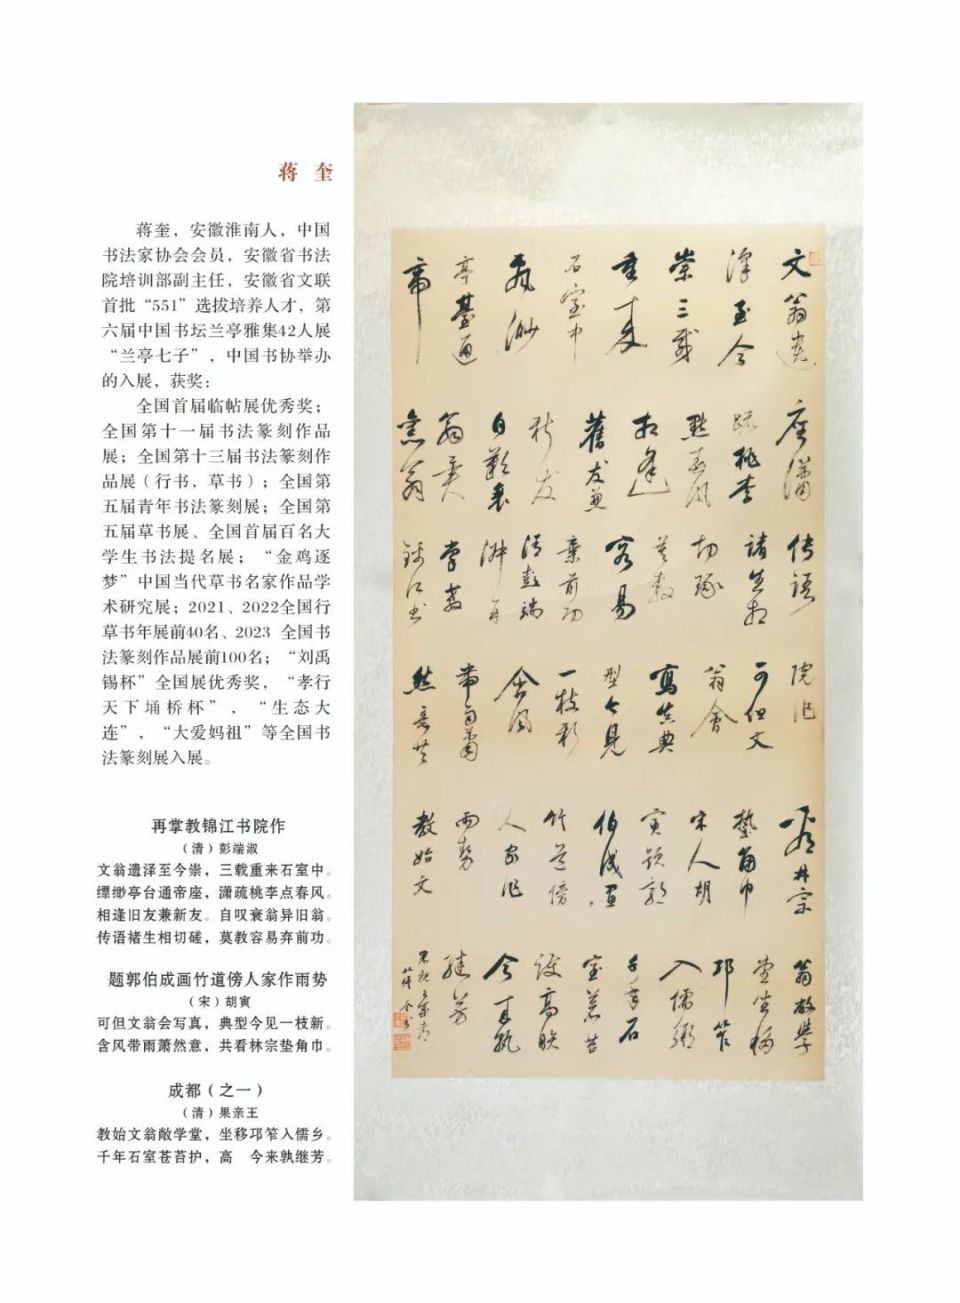 蒋 奎
蒋奎，安徽淮南人，中国
书法家协会会员，安徽省书法
院培训部副主任，安徽省文联
首批“551”选拔培养人才，第
六届中国书坛兰亭雅集42人展
“兰亭七子”，中国书协举办
的入展，获奖：
全国首届临帖展优秀奖；
全国第十一届书法篆刻作品
展；全国第十三届书法篆刻作
品展（行书，草书）；全国第
五届青年书法篆刻展；全国第
五届草书展、全国首届百名大
学生书法提名展；“金鸡逐
梦”中国当代草书名家作品学
术研究展；2021、2022全国行
草书年展前40名、2023 全国书
法篆刻作品展前100名；“刘禹
锡杯”全国展优秀奖，“孝行
天下埇桥杯”，“生态大
连”，“大爱妈祖”等全国书
法篆刻展入展。
再掌教锦江书院作
（清）彭端淑
文翁遗泽至今崇，三载重来石室中。
缥缈亭台通帝座，潇疏桃李点春风。
相逢旧友兼新友。自叹衰翁异旧翁。
传语褚生相切磋，莫教容易弃前功。
题郭伯成画竹道傍人家作雨势
（宋）胡寅
可但文翁会写真，典型今见一枝新。
含风带雨萧然意，共看林宗垫角巾。
成都（之一）
（清）果亲王
教始文翁敞学堂，坐移邛笮入儒乡。
千年石室苍苔护，高　今来孰继芳。
文翁遗
泽至今
崇三载
重来
石室中
缥缈
亭台通
帝
座潇
疏桃李
点春风
相逢
旧友兼
新友
自叹衰
翁异
旧翁
传语
诸生相
切琢
莫教
容易
弃前功
清彭端
淑再
掌教
锦江书
院作
可但文
翁会
写真典
型今见
一枝新
含风
带雨萧
然意共